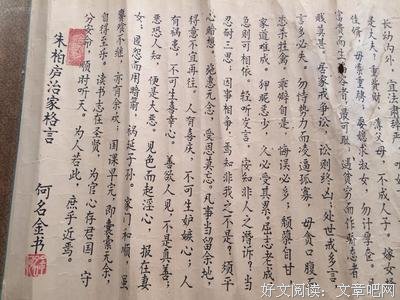 长幼内外，宜法肃辞严，听
是丈夫？重赀财，薄父母，不成人子。嫁女
佳婿，毋索重聘；娶媳求淑女，勿计厚奁。
富贵而生谄容者，最可耻；遇贫穷而作骄态者
贱莫甚。居家戒争讼，讼则终凶；处世戒多言，
言多必失。勿恃势力而凌逼孤寡，毋贪口腹而
恣杀牲禽。乖僻自是，悔误必多；颓惰自甘
家道难成。狎昵恶少，久必受其累；屈志老成
急则可相依。轻听发言，安知非人之谮诉？当
忍耐三思；因事相争，焉知非我之不是？须平
心暗想。施惠无念，受恩莫忘。凡事当留余地，
得意不宜再往。人有喜庆，不可生妒嫉心；人
有祸患，不可生喜幸心。善欲人见，不是真善；
恶恐人知，便是大恶。见色而起淫心，报在妻
女；匿怨而用暗箭，祸延子孙。家门和顺，虽
饔飧不继，亦有余欢；国课早完，即囊橐无余，
自得至乐。读书志在圣贤，为官心存君国。守
分安命，顺时听天。为人若此，庶乎近焉。
朱柏庐治家格言
何名金书
好文阅读：文章吧网